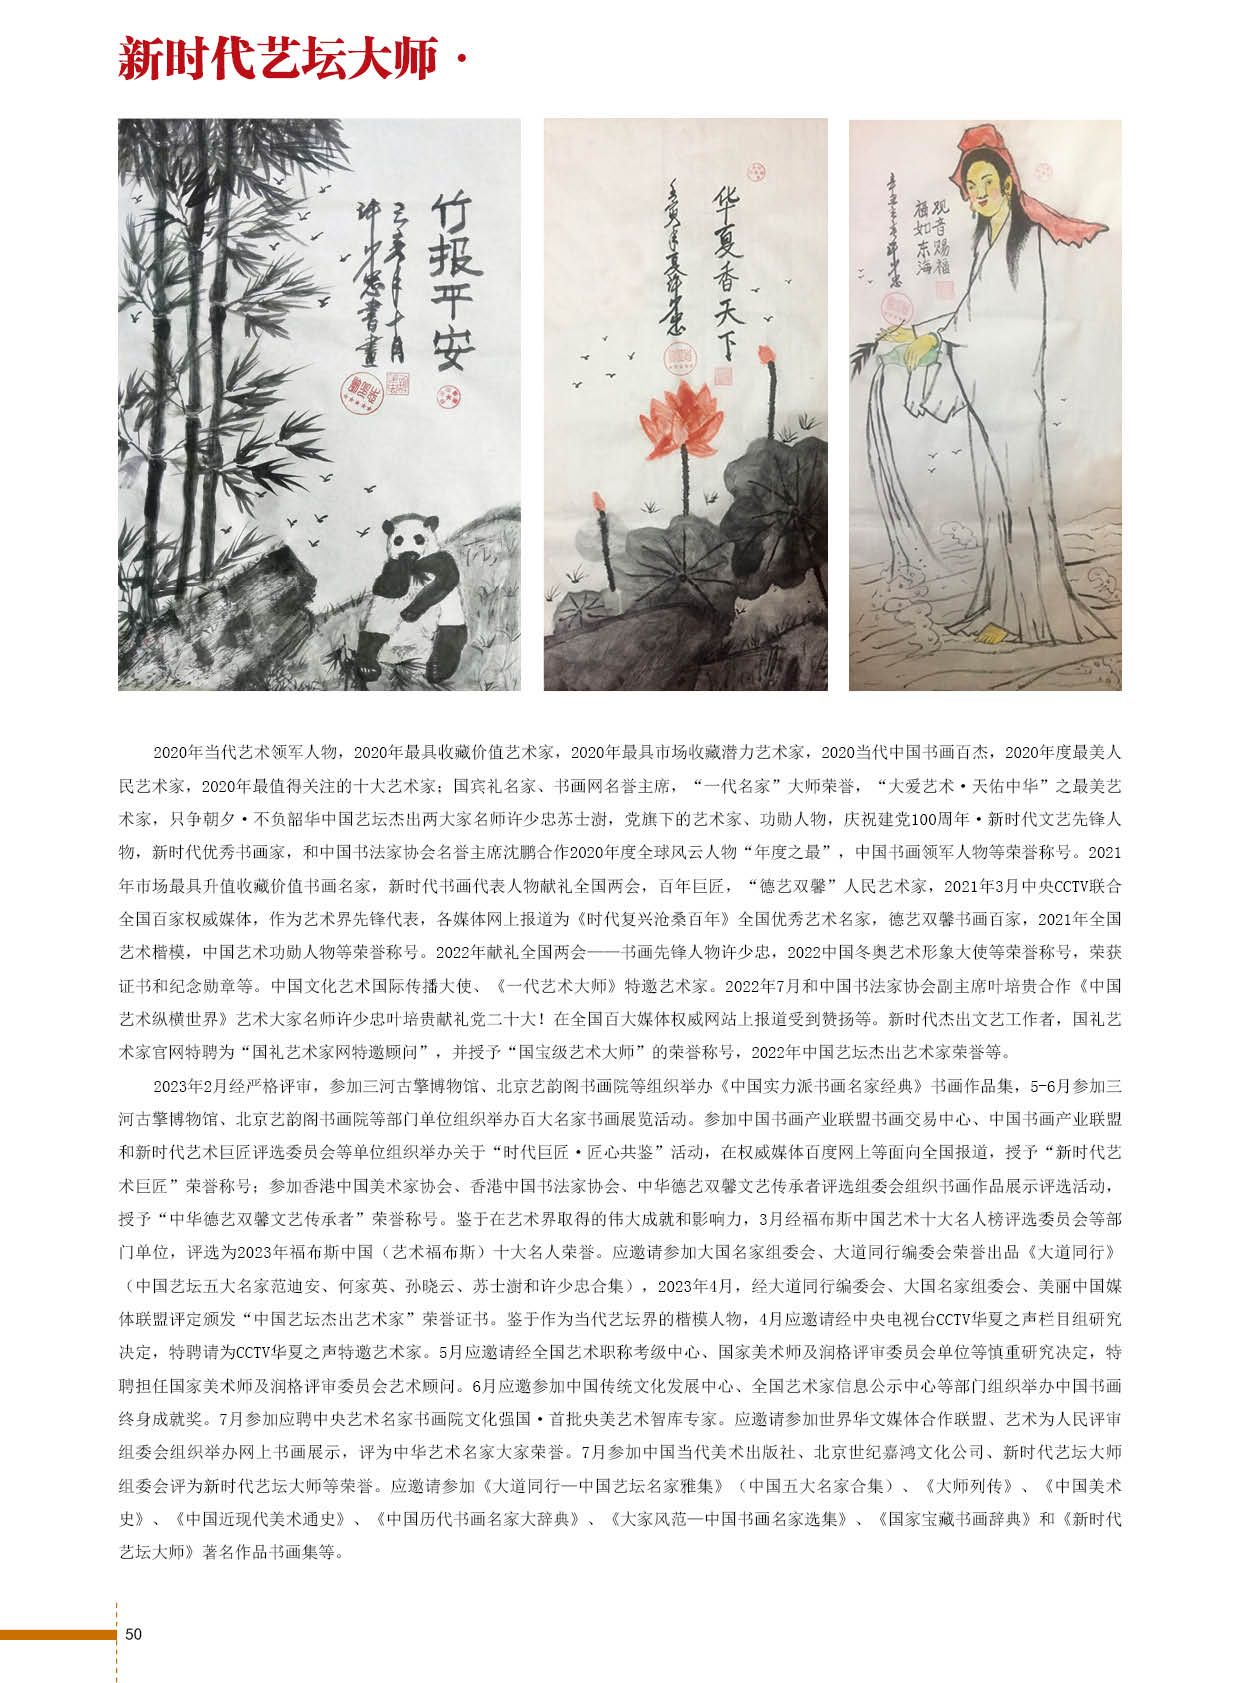 新时代艺坛大师·
竹报平安
己亥年十月
许少忠书画
华夏香天下
壬寅年夏许少忠
观音赐福
福如东海
2020年当代艺术领军人物，2020年最具收藏价值艺术家，2020年最具市场收藏潜力艺术家，2020当代中国书画百杰，2020年度最美人
民艺术家，2020年最值得关注的十大艺术家；国宾礼名家、书画网名誉主席，“一代名家”大师荣誉，“大爱艺术·天佑中华”之最美艺
术家，只争朝夕·不负韶华中国艺坛杰出两大家名师许少忠苏士澍，党旗下的艺术家、功勋人物，庆祝建党100周年·新时代文艺先锋人
物，新时代优秀书画家，和中国书法家协会名誉主席沈鹏合作2020年度全球风云人物“年度之最”，中国书画领军人物等荣誉称号。2021
年市场最具升值收藏价值书画名家，新时代书画代表人物献礼全国两会，百年巨匠，“德艺双馨”人民艺术家，2021年3月中央CCTV联合
全国百家权威媒体，作为艺术界先锋代表，各媒体网上报道为《时代复兴沧桑百年》全国优秀艺术名家，德艺双馨书画百家，2021年全国
艺术楷模，中国艺术功勋人物等荣誉称号。2022年献礼全国两会——书画先锋人物许少忠，2022中国冬奥艺术形象大使等荣誉称号，荣获
证书和纪念勋章等。中国文化艺术国际传播大使、《一代艺术大师》特邀艺术家。2022年7月和中国书法家协会副主席叶培贵合作《中国
艺术纵横世界》艺术大家名师许少忠叶培贵献礼党二十大！在全国百大媒体权威网站上报道受到赞扬等。新时代杰出文艺工作者，国礼艺
术家官网特聘为“国礼艺术家网特邀顾问”，并授予“国宝级艺术大师”的荣誉称号，2022年中国艺坛杰出艺术家荣誉等。
2023年2月经严格评审，参加三河古擎博物馆、北京艺韵阁书画院等组织举办《中国实力派书画名家经典》书画作品集，5-6月参加三
河古擎博物馆、北京艺韵阁书画院等部门单位组织举办百大名家书画展览活动。参加中国书画产业联盟书画交易中心、中国书画产业联盟
和新时代艺术巨匠评选委员会等单位组织举办关于“时代巨匠·匠心共鉴”活动，在权威媒体百度网上等面向全国报道，授予“新时代艺
术巨匠”荣誉称号；参加香港中国美术家协会、香港中国书法家协会、中华德艺双馨文艺传承者评选组委会组织书画作品展示评选活动，
授予“中华德艺双馨文艺传承者”荣誉称号。鉴于在艺术界取得的伟大成就和影响力，3月经福布斯中国艺术十大名人榜评选委员会等部
门单位，评选为2023年福布斯中国（艺术福布斯）十大名人荣誉。应邀请参加大国名家组委会、大道同行编委会荣誉出品《大道同行》
（中国艺坛五大名家范迪安、何家英、孙晓云、苏士澍和许少忠合集），2023年4月，经大道同行编委会、大国名家组委会、美丽中国媒
体联盟评定颁发“中国艺坛杰出艺术家”荣誉证书。鉴于作为当代艺坛界的楷模人物，4月应邀请经中央电视台CCTV华夏之声栏目组研究
决定，特聘请为CCTV华夏之声特邀艺术家。5月应邀请经全国艺术职称考级中心、国家美术师及润格评审委员会单位等慎重研究决定，特
聘担任国家美术师及润格评审委员会艺术顾问。6月应邀参加中国传统文化发展中心、全国艺术家信息公示中心等部门组织举办中国书画
终身成就奖。7月参加应聘中央艺术名家书画院文化强国·首批央美艺术智库专家。应邀请参加世界华文媒体合作联盟、艺术为人民评审
组委会组织举办网上书画展示，评为中华艺术名家大家荣誉。7月参加中国当代美术出版社、北京世纪嘉鸿文化公司、新时代艺坛大师
组委会评为新时代艺坛大师等荣誉。应邀请参加《大道同行—中国艺坛名家雅集》（中国五大名家合集）、《大师列传》、《中国美术
史》、《中国近现代美术通史》、《中国历代书画名家大辞典》、《大家风范—中国书画名家选集》、《国家宝藏书画辞典》和《新时代
艺坛大师》著名作品书画集等。
50